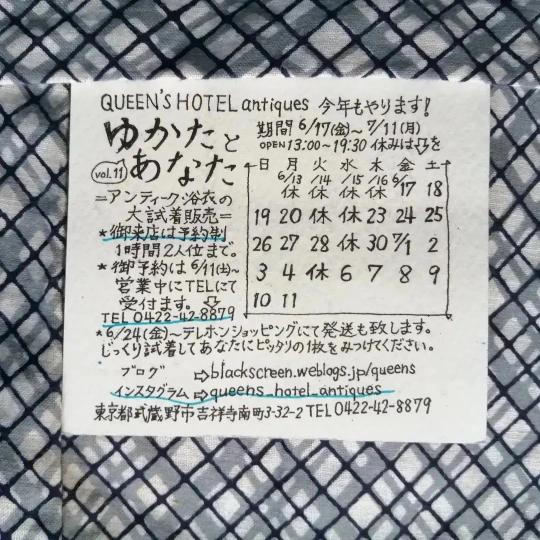 QUEEN'S HOTEL antiques 今年もやります!
ゆかたと
あなた
vol.11
期間 6/17(金)~7/11(月)
OPEN 13:00~19:30 休みは⇩を
=アンティーク浴衣の
大試着販売=
*御来店は予約制
1時間2人位まで。
*御予約は6/11(土)~
営業中にTELにて
受付ます。⇩
TEL 0422-42-8879
日 月 火 水 木 金 土
6/13 /14 /15 /16 6/
休 休 休 休 17 18
19 20 休 休 23 24 25
26 27 28 休 30 7/1 2
3 4 休 6 7 8 9
10 11
*6/24(金)~テレホンショッピングにて発送も致します。
じっくり試着してあなたにピッタリの1枚をみつけてください。
ブログ ⇨blackscreen.weblogs.jp/queens
インスタグラム ⇨queens_hotel_antiques
東京都武蔵野市吉祥寺南町3-32-2 TEL 0422-42-8879